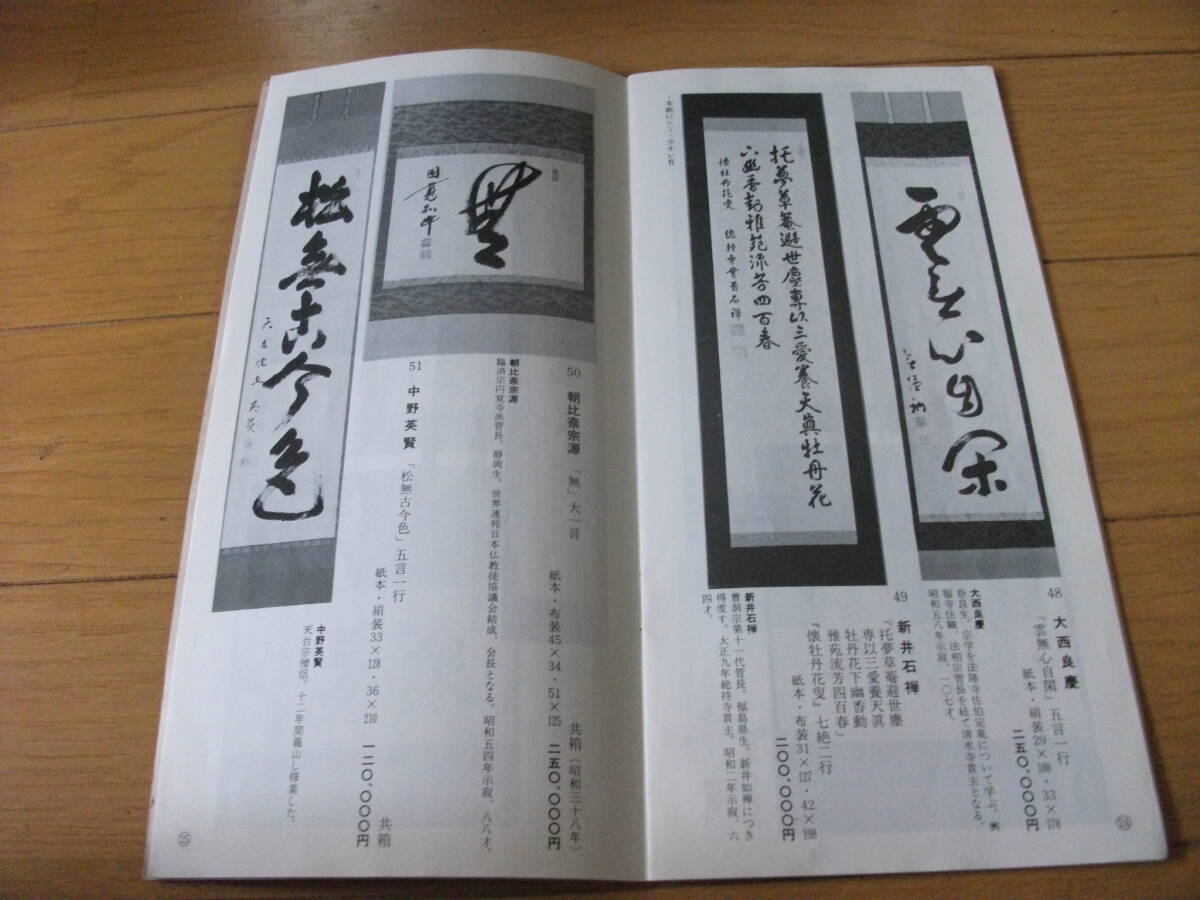 48 大西良慶
「雲無心自閑」五言一行
紙本・絹装29×100・33×178
二五〇、〇〇〇円
大西良慶
奈良生。宗学を法隆寺佐伯定胤について学ぶ。興
福寺住職、法相宗管長を経て清水寺貫主となる。
昭和五八年示寂、一〇七才。
㉔
49 新井石禅
「托夢草菴避世塵
専以三愛養天眞
牡丹花下幽香動
雅苑流芳四百春」
『懐牡丹花叟』七絶二行
紙本・布装31×127・42×198
二〇〇、〇〇〇円
新井石禅
曹洞宗第十一代管長。福島県生。新井如禅につき
得度す。大正九年総持寺貫主。昭和二年示寂、六
四才。
・本紙にシミ・少オレ有
托夢草菴避世塵専以三愛養天眞牡丹花
下幽香動雅苑流芳四百春
懐牡丹花叟
雲無心自閑
50 朝比奈宗源 「無」大一言
共箱（昭和三十八年）
紙本・布装45×34・51×125
二五〇、〇〇〇円
朝比奈宗源
臨済宗円覚寺派管長。静岡生。世界連邦日本仏教徒協議会結成、会長となる。昭和五四年示寂、八八才。
無
51 中野英賢 「松無古今色」五言一行
共箱
紙本・絹装33×128・36×210
一二〇、〇〇〇円
中野英賢
天台宗僧侶。十二年間籠山し修業した。
松無古今色
㉕